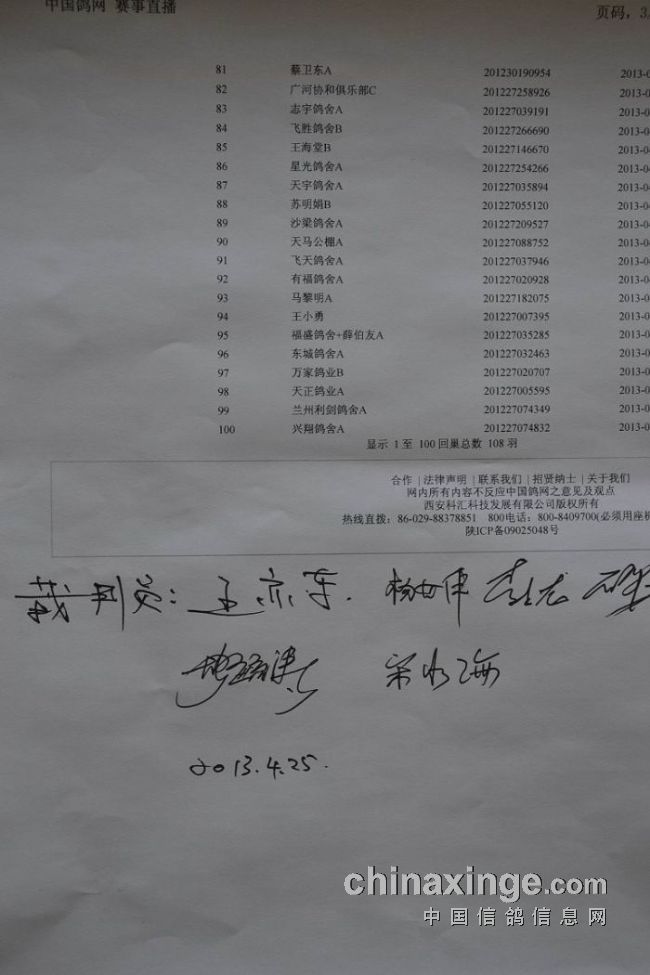 中国鸽网 赛事直播 页码，3/
81 蔡卫东A 201230190954 2013-0
82 广河协和俱乐部C 201227258926 2013-0
83 志宇鸽舍A 201227039191 2013-0
84 飞胜鸽舍B 201227266690 2013-0
85 王海堂B 201227146670 2013-0
86 星光鸽舍A 201227254266 2013-0
87 天宇鸽舍A 201227035894 2013-0
88 苏明娟B 201227055120 2013-0
89 沙梁鸽舍A 201227209527 2013-0
90 天马公棚A 201227088752 2013-0
91 飞天鸽舍A 201227037946 2013-0
92 有福鸽舍A 201227020928 2013-0
93 马黎明A 201227182075 2013-0
94 王小勇 201227007395 2013-0
95 福盛鸽舍+薛伯友A 201227035285 2013-0
96 东城鸽舍A 201227032463 2013-0
97 万家鸽业B 201227020707 2013-0
98 天正鸽业A 201227005595 2013-0
99 兰州利剑鸽舍A 201227074349 2013-0
100 兴翔鸽舍A 201227074832 2013-0
显示 1至 100回巢总数 108 羽
合作 | 法律声明 | 联系我们 | 招贤纳士 | 关于我们
网内所有内容不反应中国鸽网之意见及观点
西安科汇科技发展有限公司版权所有
热线直拨：86-029-88378851 800电话：800-8409700(必须用座机
陕ICP备09025048号
裁判员：
2013.4.25.
chinaxinge.com
中国信鸽信息网